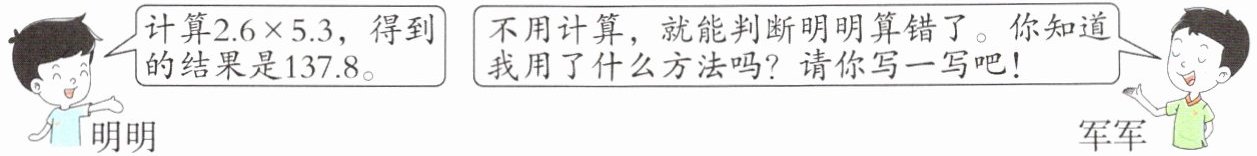 计算2.6×5.3，得到
的结果是137.8。
不用计算，就能判断明明算错了。你知道
我用了什么方法吗？请你写一写吧！
明明
军军